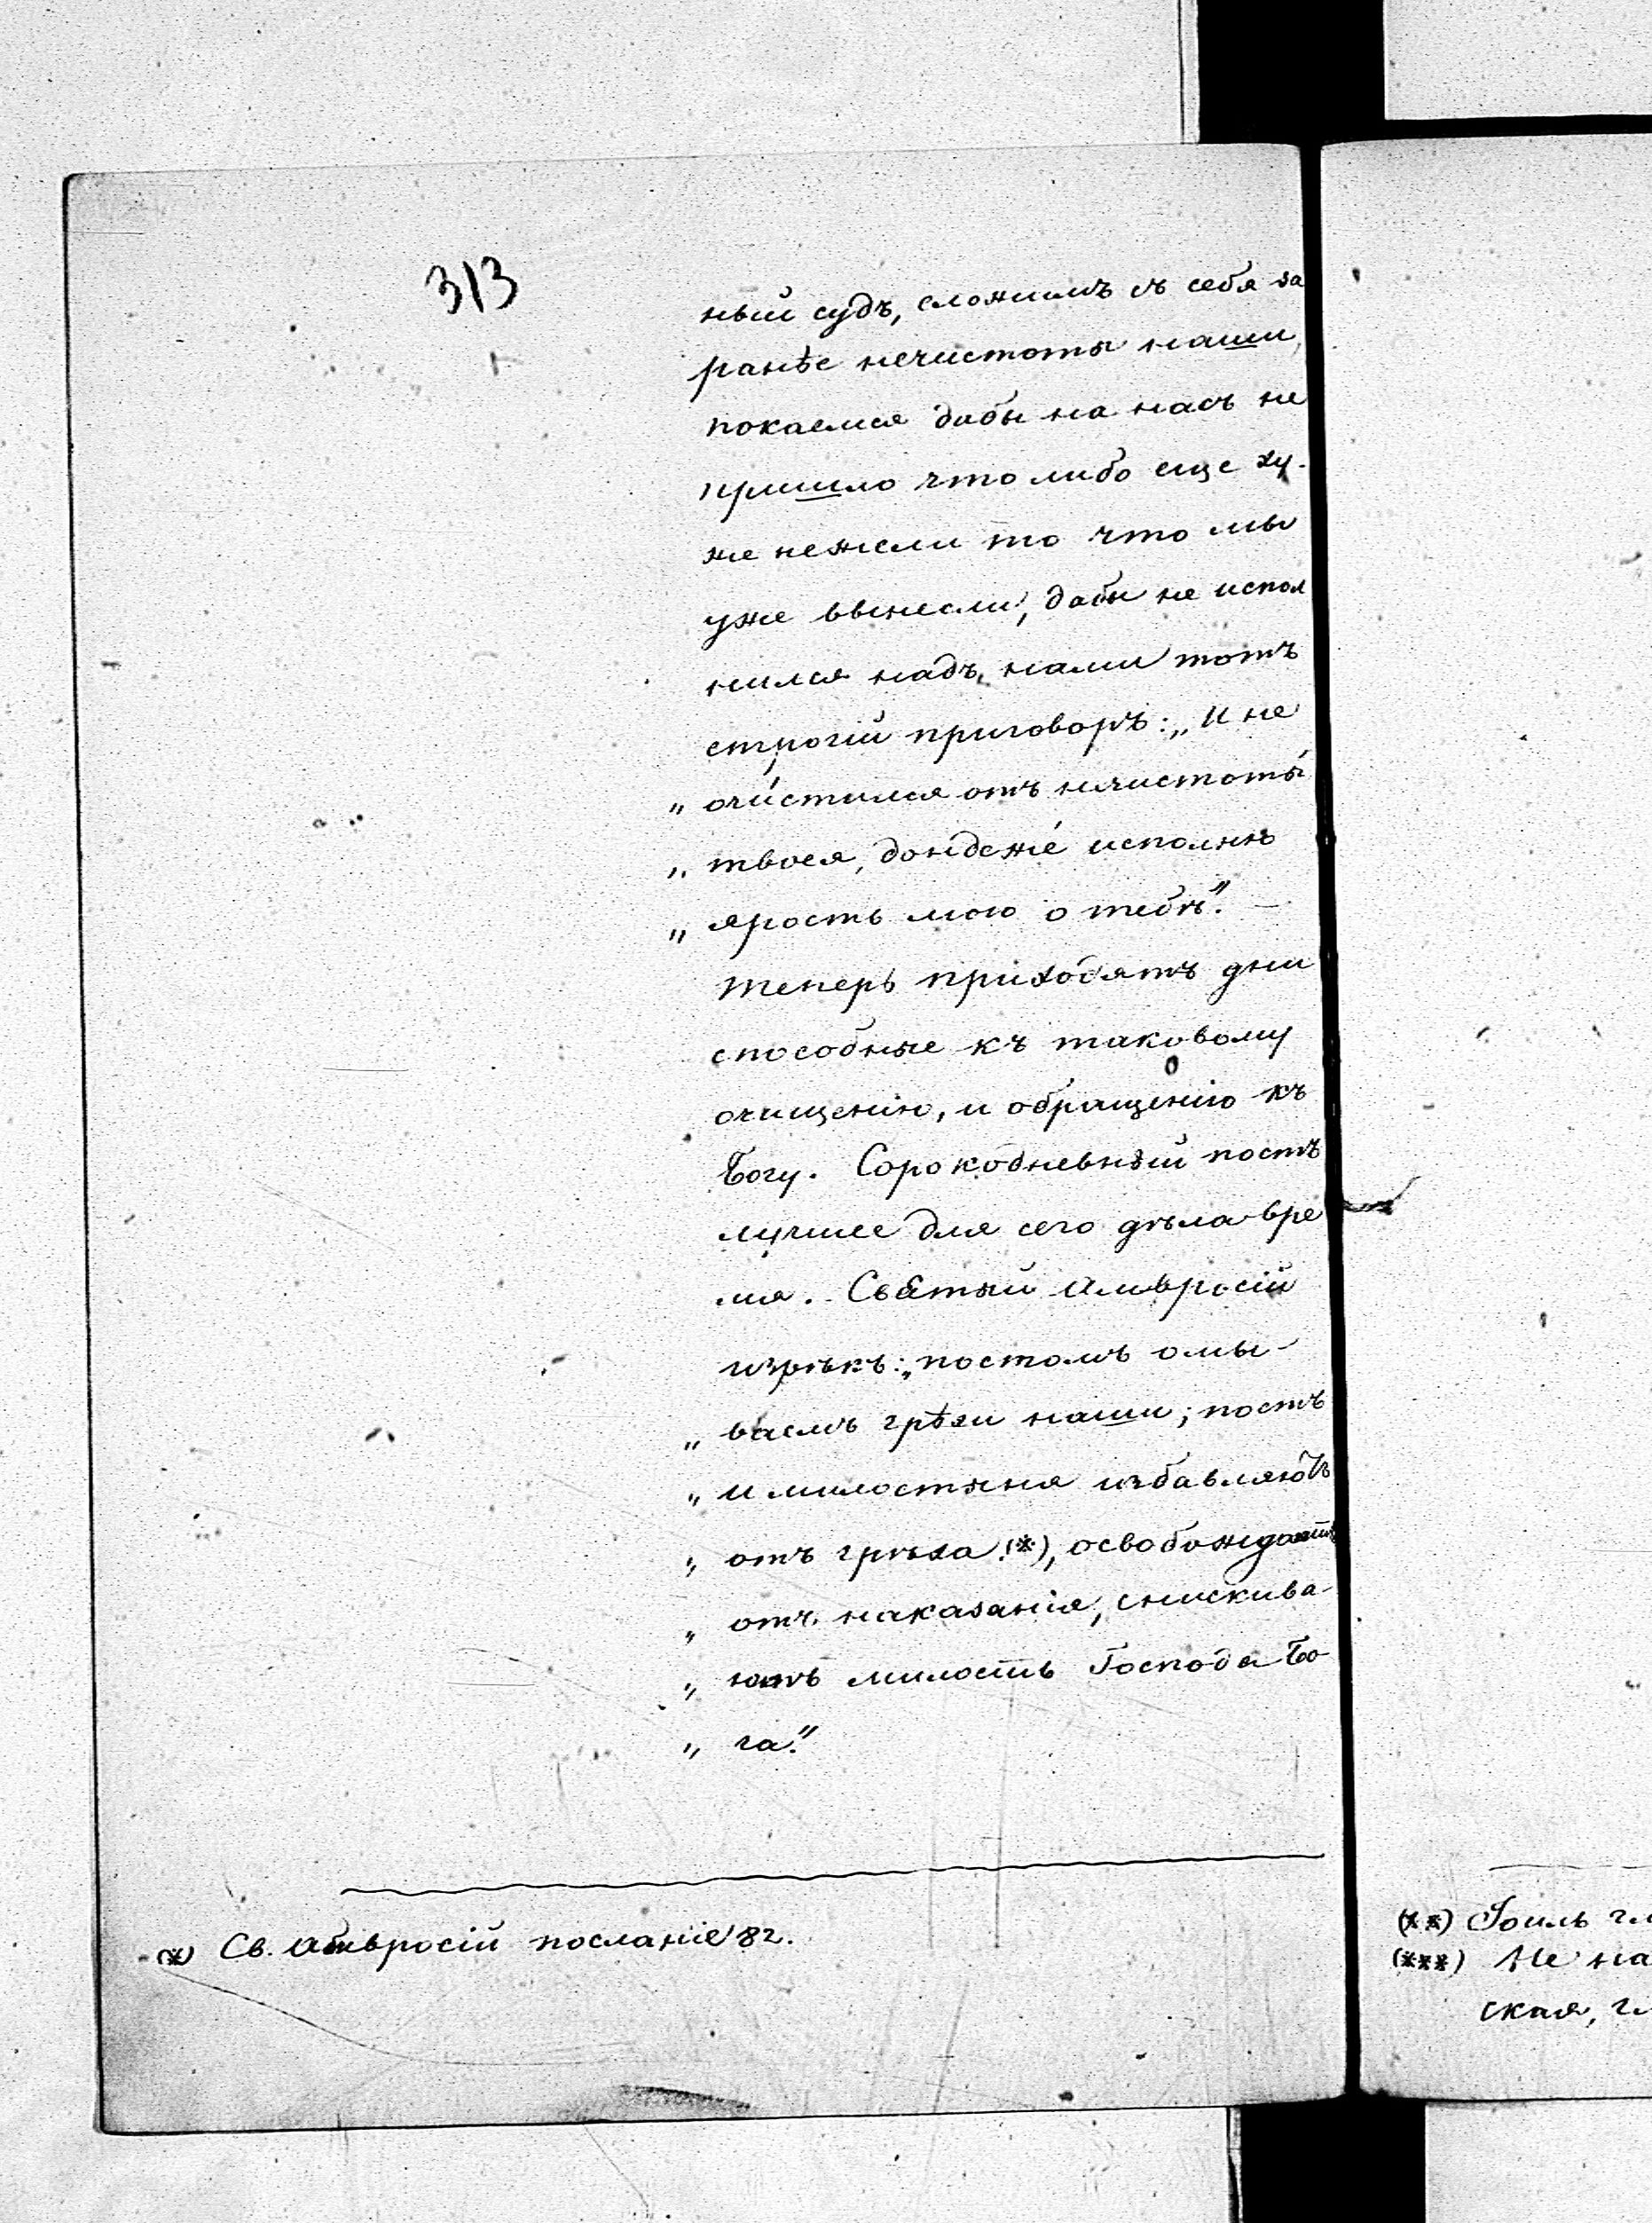 313
ный судъ, сложимъ съ себя за
ранѣе нечистоты наши,
покаемся дабы на насъ не
пришло что либо еще ху-
же нежели то что мы
уже вынесли, дабы не испол
нился надъ нами тотъ
строгій приговоръ: „И не
„ очи́стишся отъ нечистоты́
„ твоея, дондеже́ исполню
„ ярость мою о тебѣ.“ —
Теперь приходятъ дни
способные къ таковому
очищенію, и обращенію къ
Богу. Сорокодневный постъ
лучшее для сего дѣла вре
мя. Святый Амвросій
изрѣкъ: „постомъ омы-
„ ваемъ грѣхи наши; постъ
„ и милостыня избавляютъ
„ отъ грѣха (*), освобождаютъ
„ отъ наказанія, снискива-
„ ютъ милость Господа Бо
„ га.“
(*) Св. Амвросій посланіе 82.
(**) Іоиль гл
(***) Не на
ская, гл